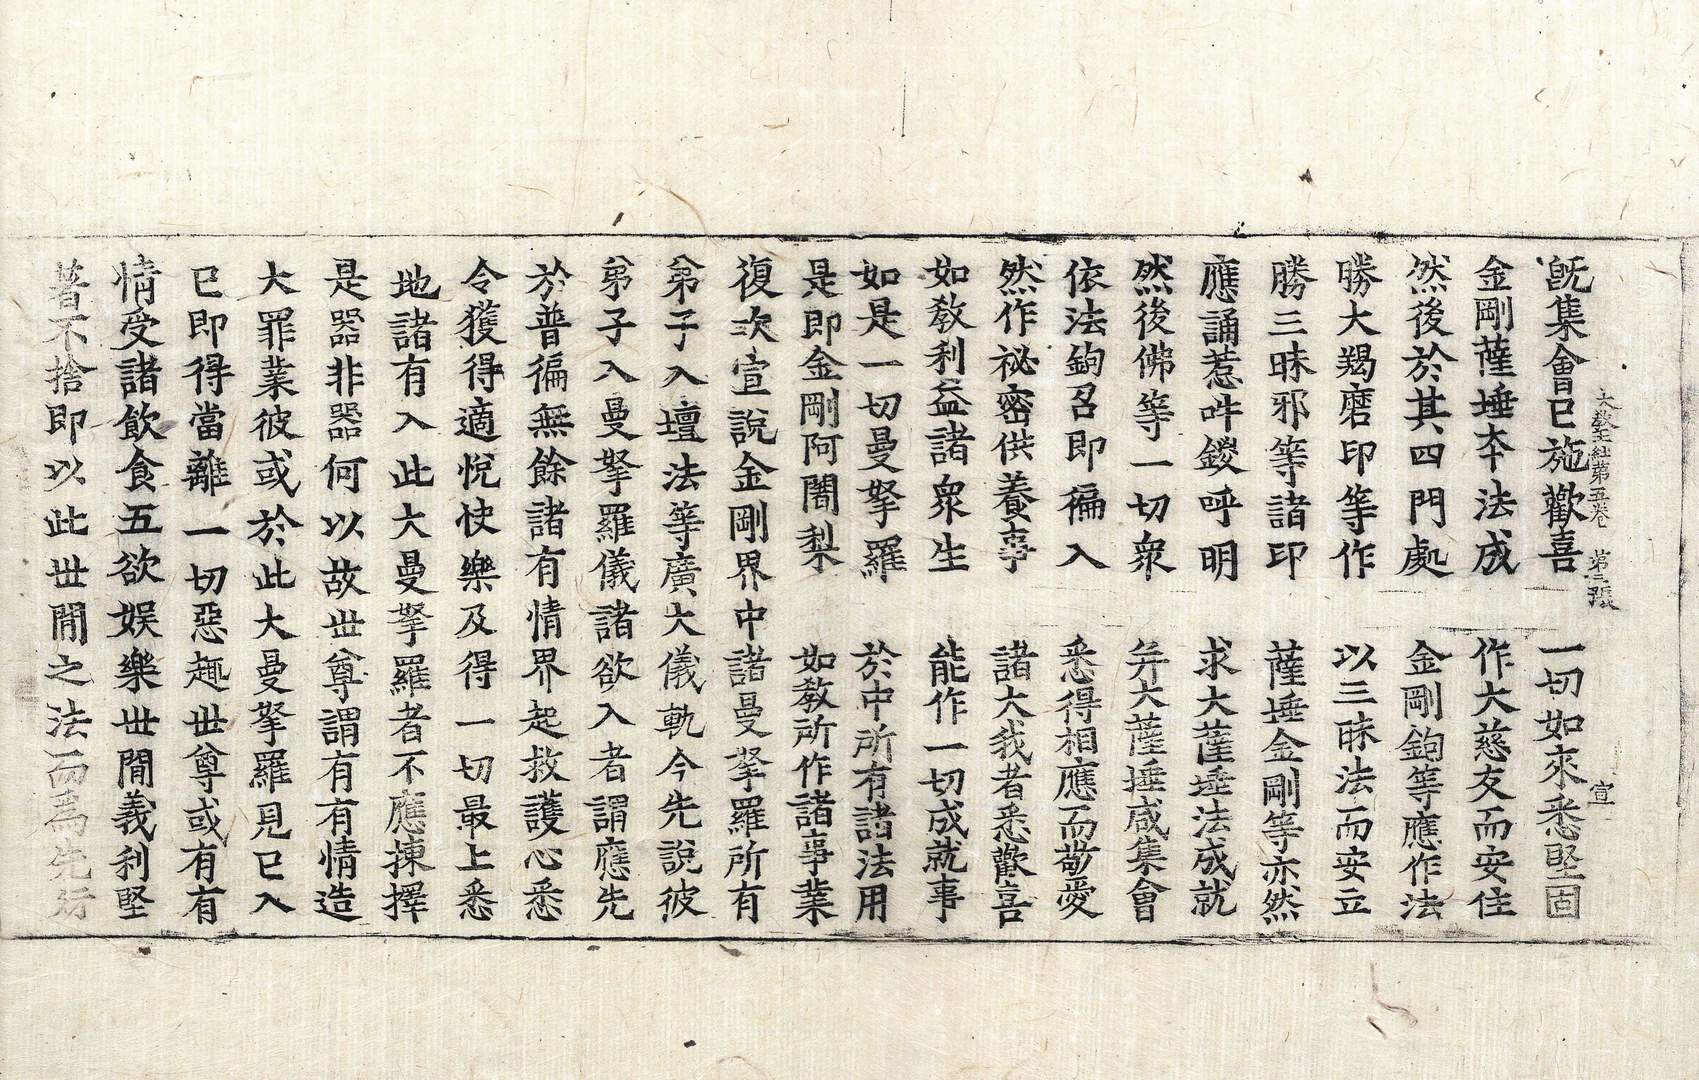 大教王經第五卷　第三張　宣
既集會已施歡喜　一切如來悉堅固
金剛薩埵本法成　作大慈友而安住
然後於其四門處　金剛鉤等應作法
勝大羯磨印等作　以三昧法而安立
勝三昧邪等諸印　薩埵金剛等亦然
應誦惹吽鑁呼明　求大薩埵法成就
然後佛等一切衆　并大薩埵咸集會
依法鉤召即徧入　悉得相應而敬愛
然作祕密供養事　諸大我者悉歡喜
如教利益諸衆生　能作一切成就事
如是一切曼拏羅　於中所有諸法用
是即金剛阿闍梨　如教所作諸事業
復次宣說金剛界中諸曼拏羅所有
弟子入壇法等廣大儀軌今先說彼
弟子入曼拏羅儀諸欲入者謂應先
於普徧無餘諸有情界起救護心悉
令獲得適悅快樂及得一切最上悉
地諸有入此大曼拏羅者不應揀擇
是器非器何以故世尊謂有有情造
大罪業彼或於此大曼拏羅見已入
已即得當離一切惡趣世尊或有有
情受諸飲食五欲娛樂世間義利堅
著不捨即以此世間之法而為先行